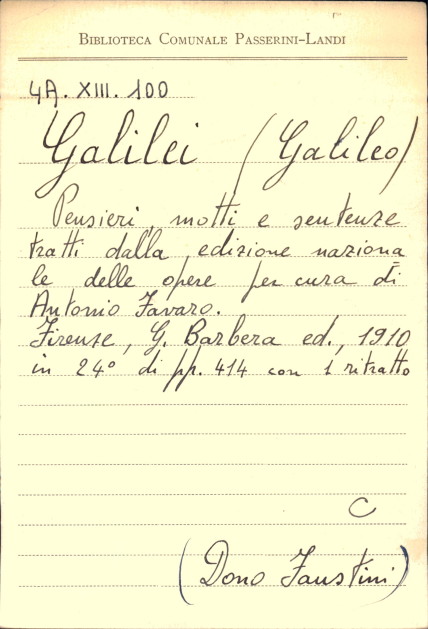 BIBLIOTECA COMUNALE PASSERINI-LANDI
4A. XIII. 100
Galilei (Galileo)
Pensieri, motti e sentenze
tratti dalla edizione naziona
le delle opere per cura di
Antonio Favaro.
Firenze, G. Barbera ed., 1910
in 24° di pp. 414 con 1 ritratto
C
(Dono Faustini)